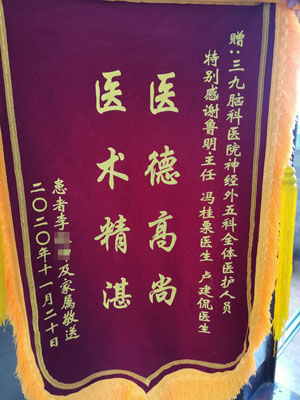 赠：三九脑科医院神经外五科全体医护人员
特别感谢鲁明主任 冯桂泉医生 卢建侃医生
医德高尚
医术精湛
患者李 及家属敬送
二〇二〇年十一月二十日